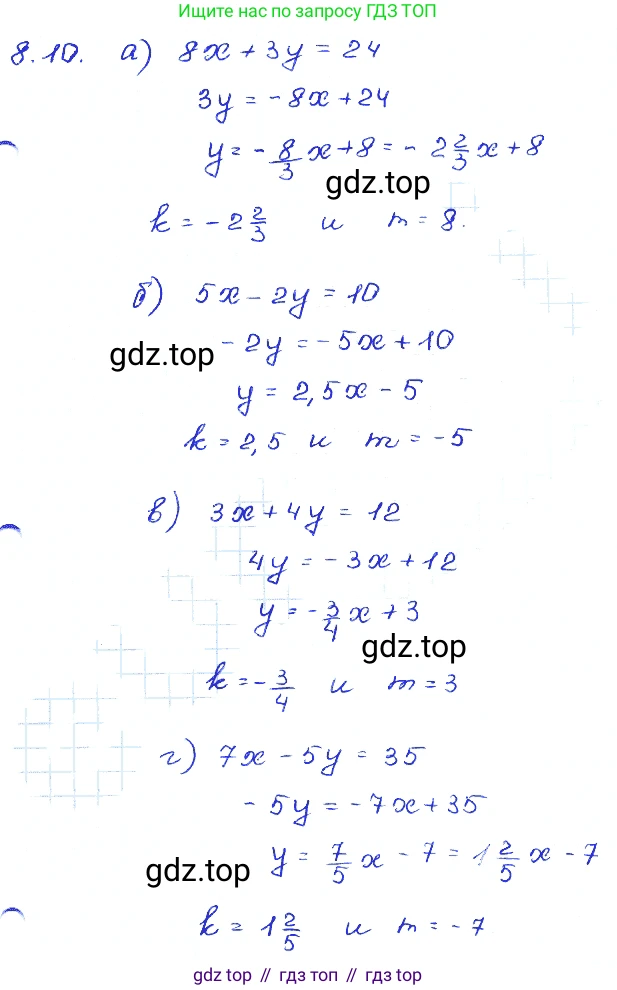 Ищите нас по запросу ГДЗ ТОП
8.10. а) 8x + 3y = 24
3y = -8x + 24
y = -8/3 x + 8 = -2 2/3 x + 8
gdz.top
k = -2 2/3 и m = 8.
б) 5x - 2y = 10
gdz.top
-2y = -5x + 10
y = 2,5x - 5
k = 2,5 и m = -5
в) 3x + 4y = 12
4y = -3x + 12
y = -3/4 x + 3
gdz.top
k = -3/4 и m = 3
г) 7x - 5y = 35
-5y = -7x + 35
y = 7/5 x - 7 = 1 2/5 x - 7
gdz.top
k = 1 2/5 и m = -7
gdz top // гдз топ // gdz.top